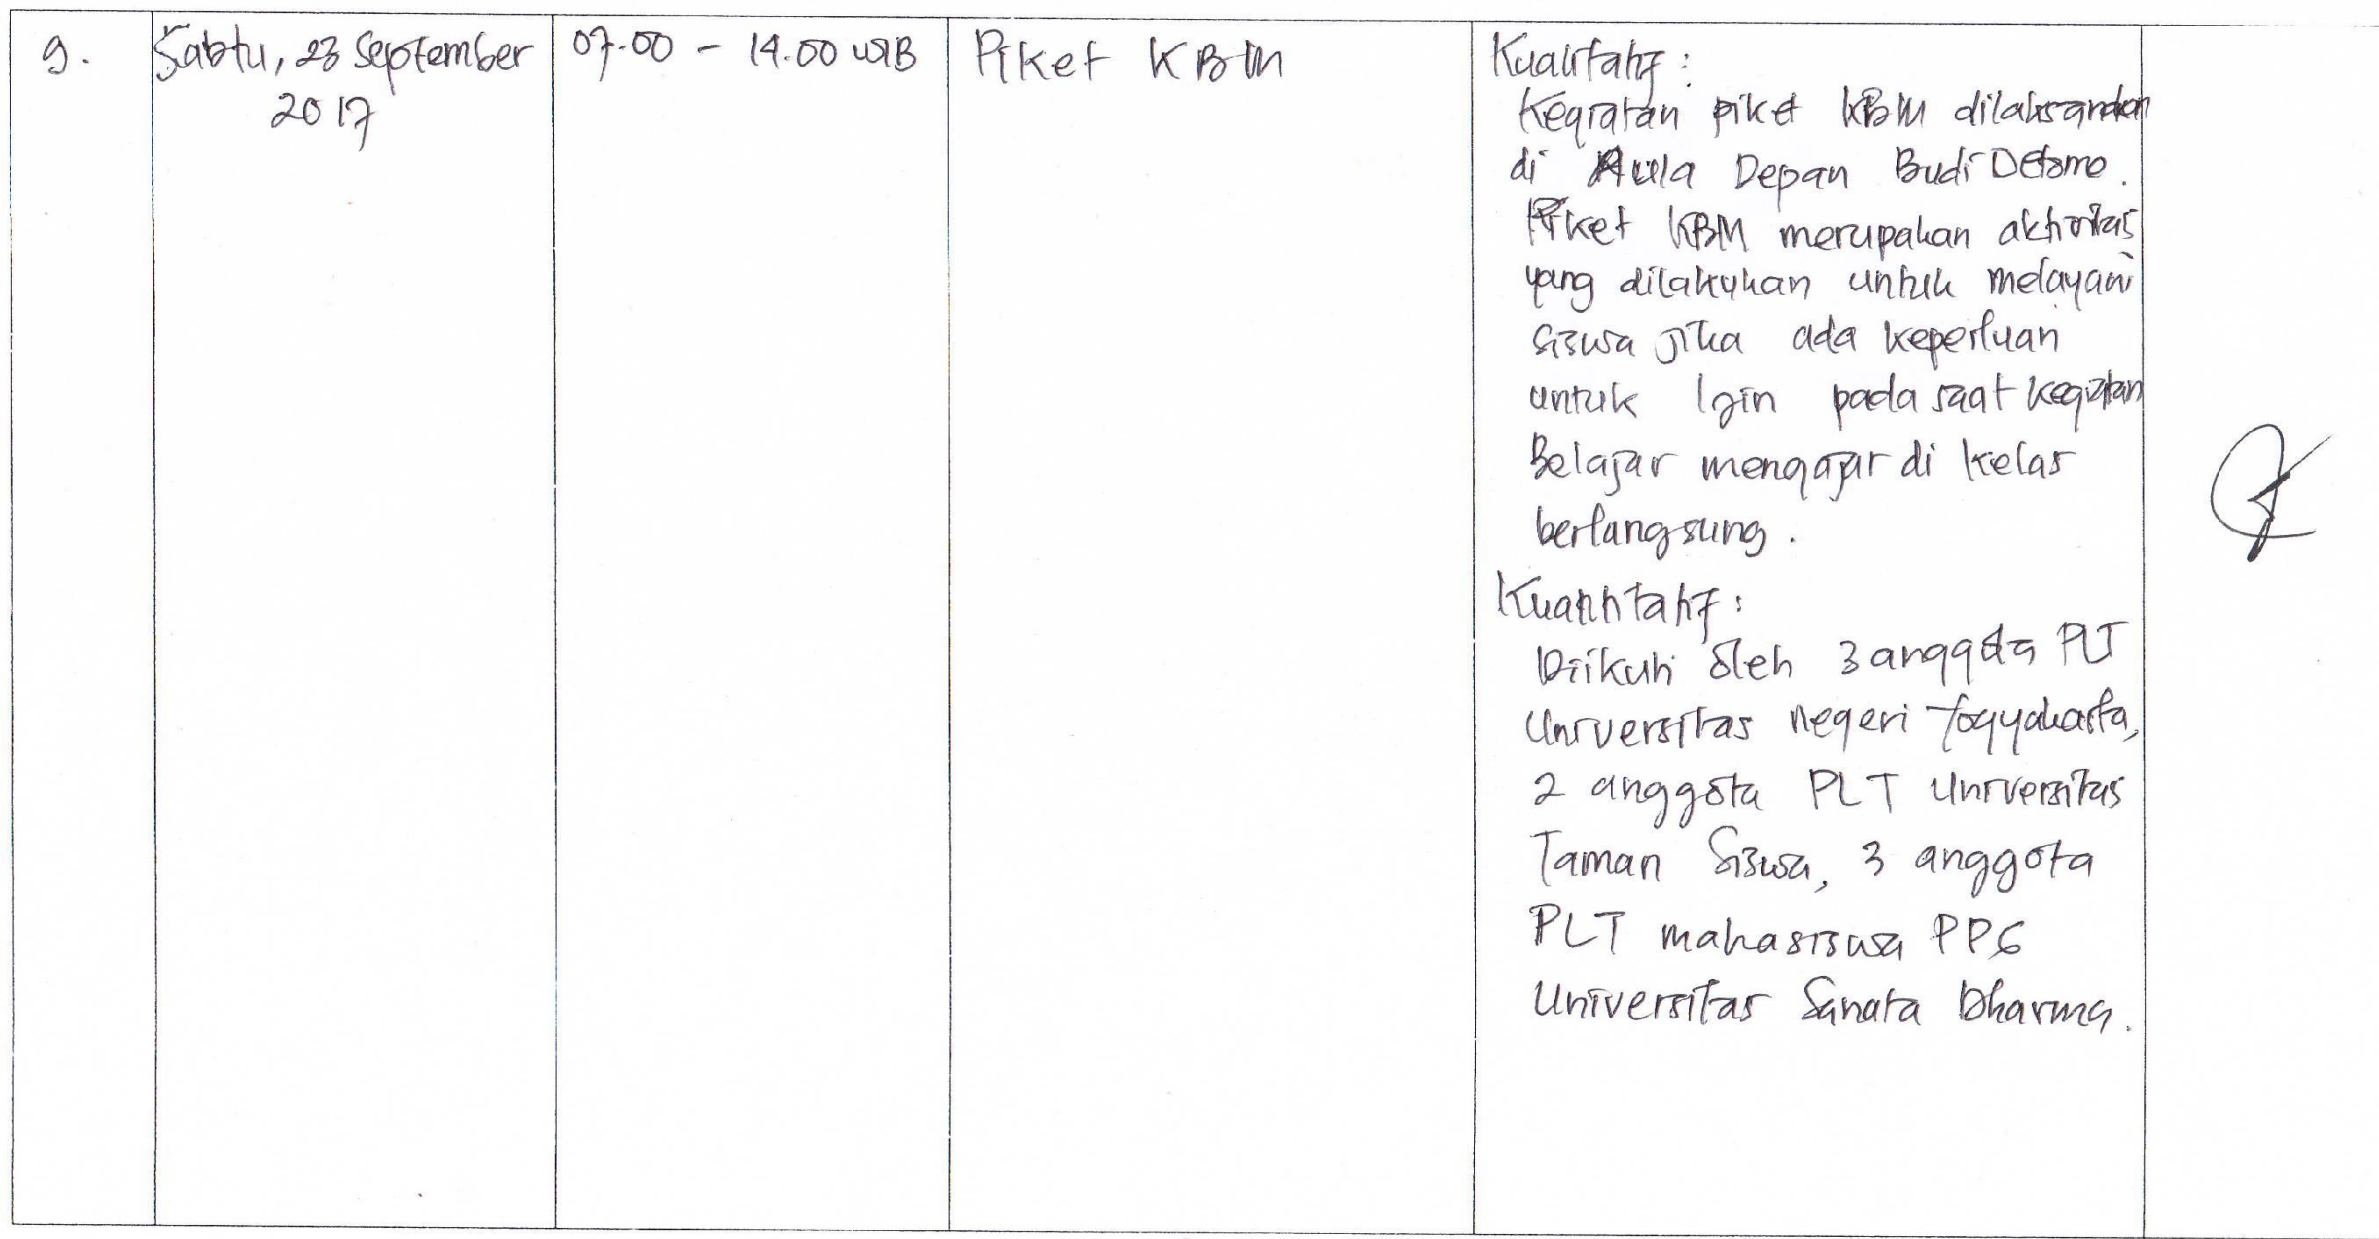 9.
Sabtu, 23 September
2017
07.00 - 14.00 WIB
Piket KBM
Kualitatif :
Kegiatan piket KBM dilaksanakan
di Aula Depan Budi Oetomo.
Piket KBM merupakan aktivitas
yang dilakukan untuk melayani
siswa jika ada keperluan
untuk Izin pada saat kegiatan
Belajar mengajar di kelas
berlangsung.
Kuantitatif :
Diikuti oleh 3 anggota PLT
Universitas Negeri Yogyakarta,
2 anggota PLT Universitas
Taman Siswa, 3 anggota
PLT mahasiswa PPG
Universitas Sanata Dharma.